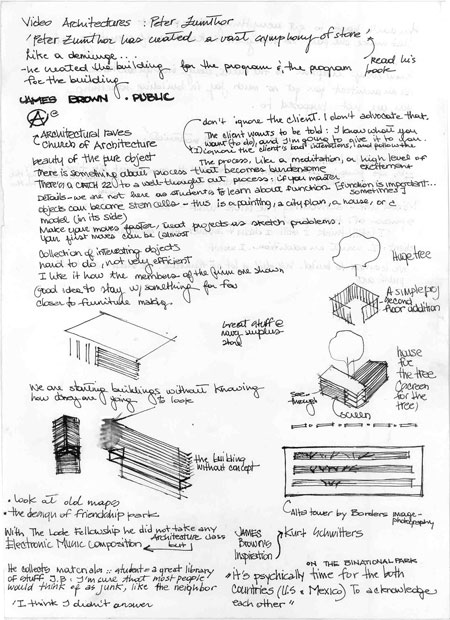 Video Architectures : Peter Zumthor
'Peter Zumthor has created a vast symphony of stone'
Read his book
Like a demiurge...
- he created the building for the program & the program
- for the building
JAMES BROWN : PUBLIC
A
Architectural raves
Church of Architecture
don't ignore the client. I don't advocate that.
The client wants to be told: I know what you
want (to do) and I'm going to give it to you.
ignore the client's bad intentions, and follow the
beauty of the pure object
The process, like a meditation, a high level of excitement
There is something about process that becomes burdensome
There's a catch 22 to a well-thought out process: if you master
Details - we are not here as students to learn about function [function is important... sometimes]
objects can become stem cells - this is a painting, a city plan, a house, or a
model (on its side)
Make your moves faster, treat projects as sketch problems.
Your first moves can be
Collection of interesting objects
hard to do, not very efficient
I like it how the members of the firm are shown
Good idea to stay w/ something for
closer to furniture making.
Huge tree
A simple proj
second
floor addition
Great stuff @
navy surplus
store
nurse
for
the tree
(screen
for the
tree)
see
through
screen
We are starting buildings without knowing
how they are going to look
the building
without concept
• Look at old maps
• the design of friendship park
Alto tower by Borders image-
photography
With The Loeb Fellowship he did not take any
Architecture class
Electronic Music Composition but
JAMES
BROWN'S
Inspiration
Kurt Schwitters
He collects materials :: student = a great library
of stuff J.B: I'm sure that most people
would think of as junk, like the neighbor
'I think I didn't answer
ON THE BINATIONAL PARK
"it's psychically time for the both
countries (U.S & Mexico) To acknowledge
each other"